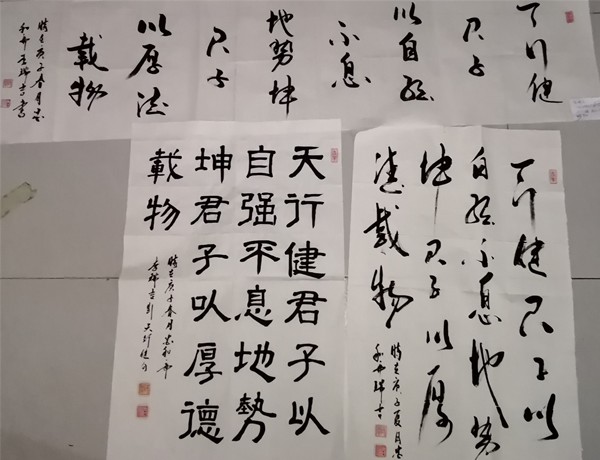 天行健
君子
以自强
不息
地勢坤
君子
以厚德
載物
時在庚子春月
天行健君子以
自强不息地勢
坤君子以厚德
載物
時在庚子春月
天行健君子以
自强不息地勢
坤君子以厚
德載物
時在庚子夏月